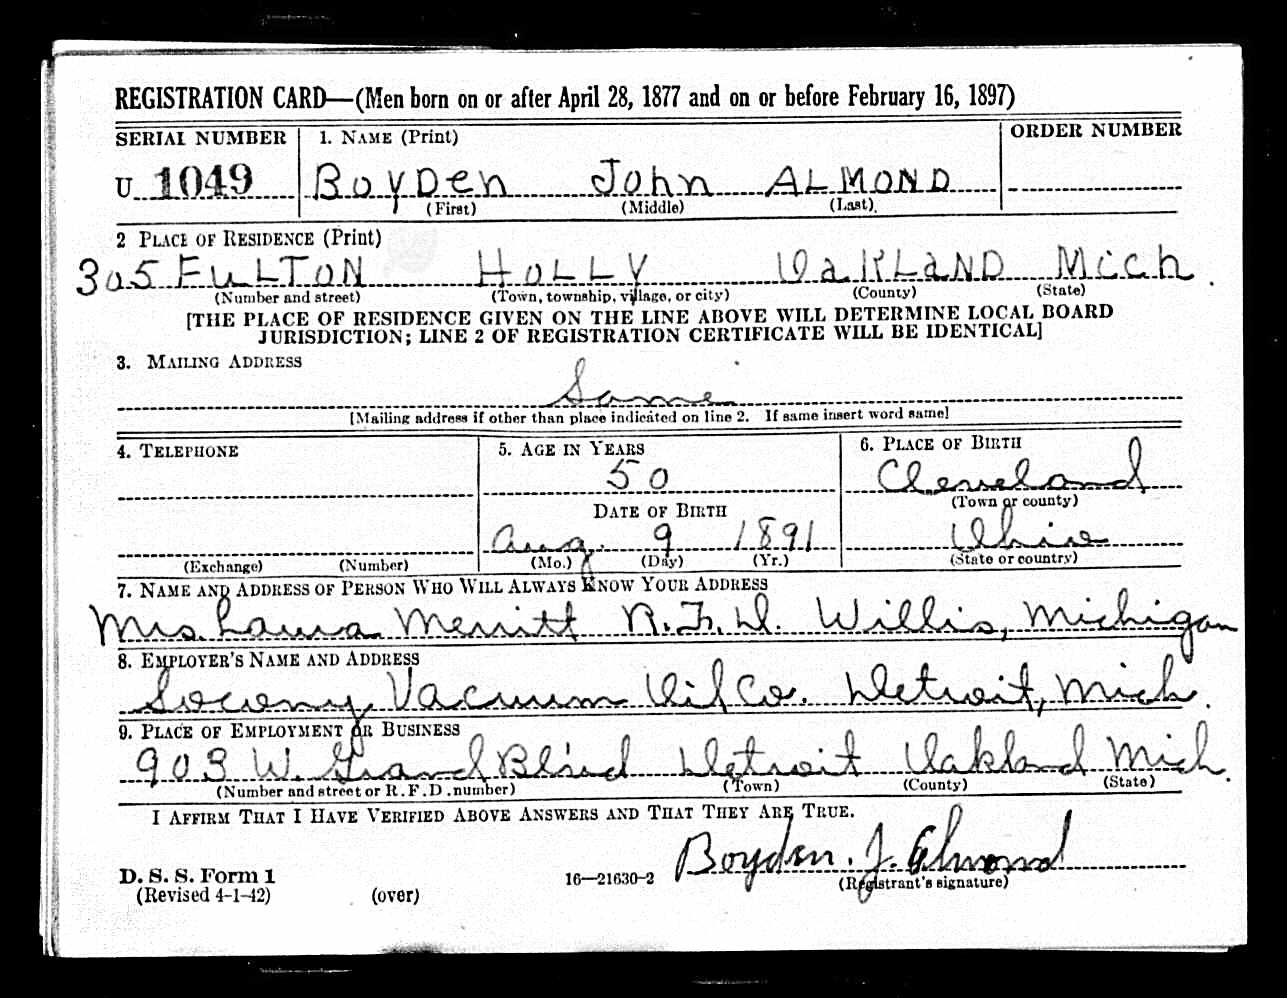 REGISTRATION CARD—(Men born on or after April 28, 1877 and on or before February 16, 1897)
SERIAL NUMBER 1. NAME (Print) ORDER NUMBER
U 1049 BOYDen John ALMOND
(First) (Middle) (Last)
2 PLACE OF RESIDENCE (Print)
305 FULTON HOLLY OaKLaND Mich
(Number and street) (Town, township, village, or city) (County) (State)
[THE PLACE OF RESIDENCE GIVEN ON THE LINE ABOVE WILL DETERMINE LOCAL BOARD
JURISDICTION; LINE 2 OF REGISTRATION CERTIFICATE WILL BE IDENTICAL]
3. MAILING ADDRESS
Same
[Mailing address if other than place indicated on line 2. If same insert word same]
4. TELEPHONE 5. AGE IN YEARS 6. PLACE OF BIRTH
50 Cleveland
(Town or county)
DATE OF BIRTH
Aug. 9 1891 Ohio
(Exchange) (Number) (Mo.) (Day) (Yr.) (State or country)
7. NAME AND ADDRESS OF PERSON WHO WILL ALWAYS KNOW YOUR ADDRESS
Mrs. Laura Merritt R.F.D. Willis, Michigan
8. EMPLOYER'S NAME AND ADDRESS
Socony Vacuum Oil Co. Detroit, Mich.
9. PLACE OF EMPLOYMENT OR BUSINESS
903 W. Grand Blvd Detroit Oakland Mich.
(Number and street or R. F. D. number) (Town) (County) (State)
I AFFIRM THAT I HAVE VERIFIED ABOVE ANSWERS AND THAT THEY ARE TRUE.
Boyden. J. Almond
D. S. S. Form 1
(Revised 4-1-42) (over) 16—21630-2 (Registrant's signature)